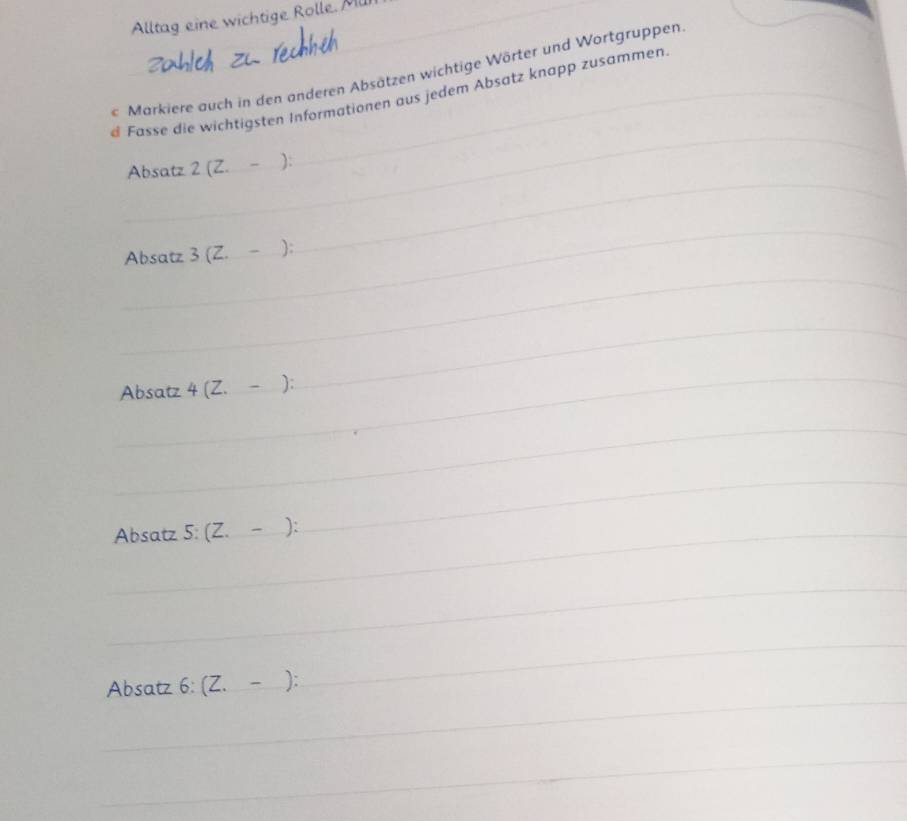 Alltag eine wichtige Rolle.
zahlen zu rechnen
c Markiere auch in den anderen Absätzen wichtige Wörter und Wortgruppen.
d Fasse die wichtigsten Informationen aus jedem Absatz knapp zusammen.
Absatz 2 (Z. - ):
Absatz 3 (Z. - ):
Absatz 4 (Z. - ):
Absatz 5: (Z. - ):
Absatz 6: (Z. - ):